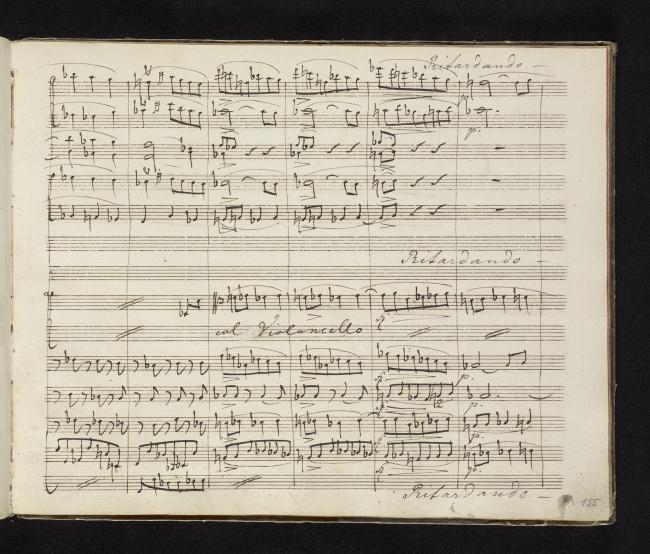 Ritardando –
p.
p.
Ritardando –
col Violoncello
p.
p.
p.
p.
Ritardando –
155